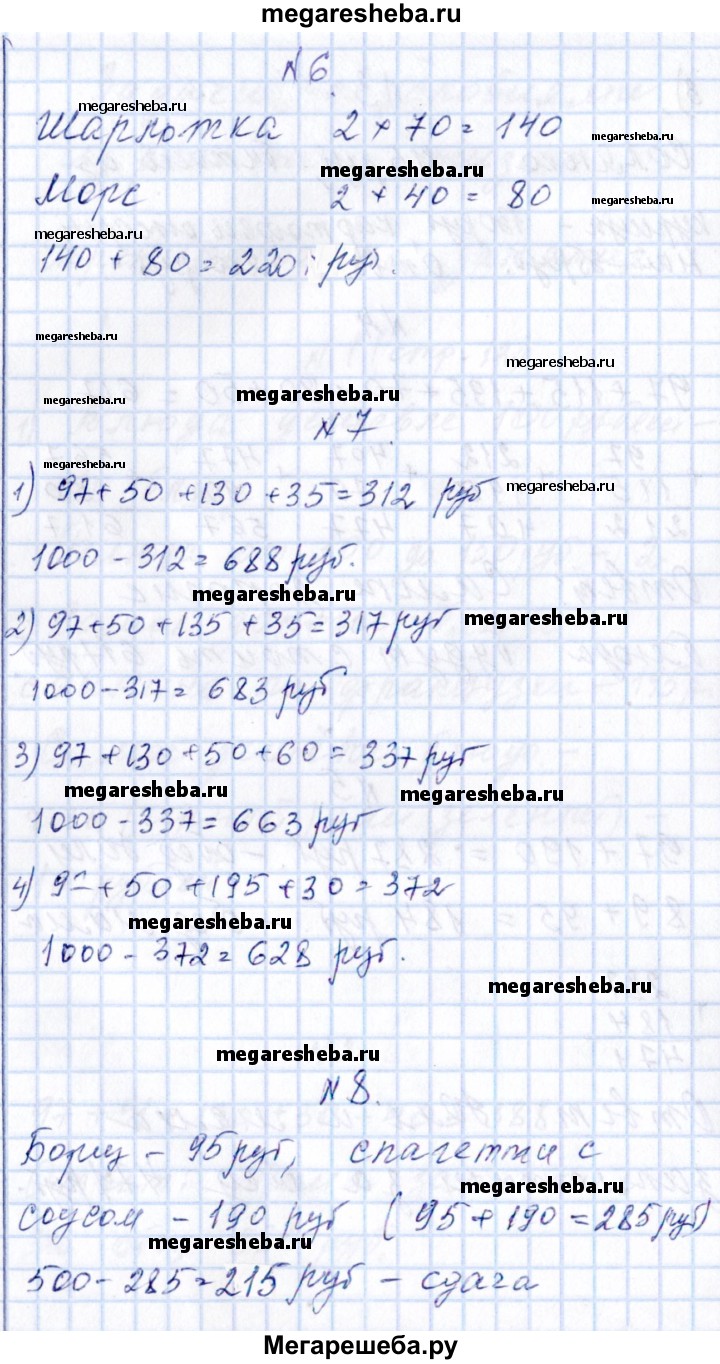 megaresheba.ru
N 6.
megaresheba.ru
Шарлотка 2 × 70 = 140
megaresheba.ru
megaresheba.ru
Морс 2 × 40 = 80
megaresheba.ru
megaresheba.ru
140 + 80 = 220 руб.
megaresheba.ru
megaresheba.ru
megaresheba.ru
megaresheba.ru
N 7.
megaresheba.ru
megaresheba.ru
1) 97 + 50 + 130 + 35 = 312 руб
1000 - 312 = 688 руб.
megaresheba.ru
2) 97 + 50 + 135 + 35 = 317 руб
megaresheba.ru
1000 - 317 = 683 руб
3) 97 + 130 + 50 + 60 = 337 руб
megaresheba.ru
megaresheba.ru
1000 - 337 = 663 руб
4) 97 + 50 + 195 + 30 = 372
megaresheba.ru
1000 - 372 = 628 руб.
megaresheba.ru
megaresheba.ru
N 8.
Борщ - 95 руб, спагетти с
megaresheba.ru
соусом - 190 руб (95 + 190 = 285 руб)
megaresheba.ru
500 - 285 = 215 руб - сдача
Мегарешеба.ру